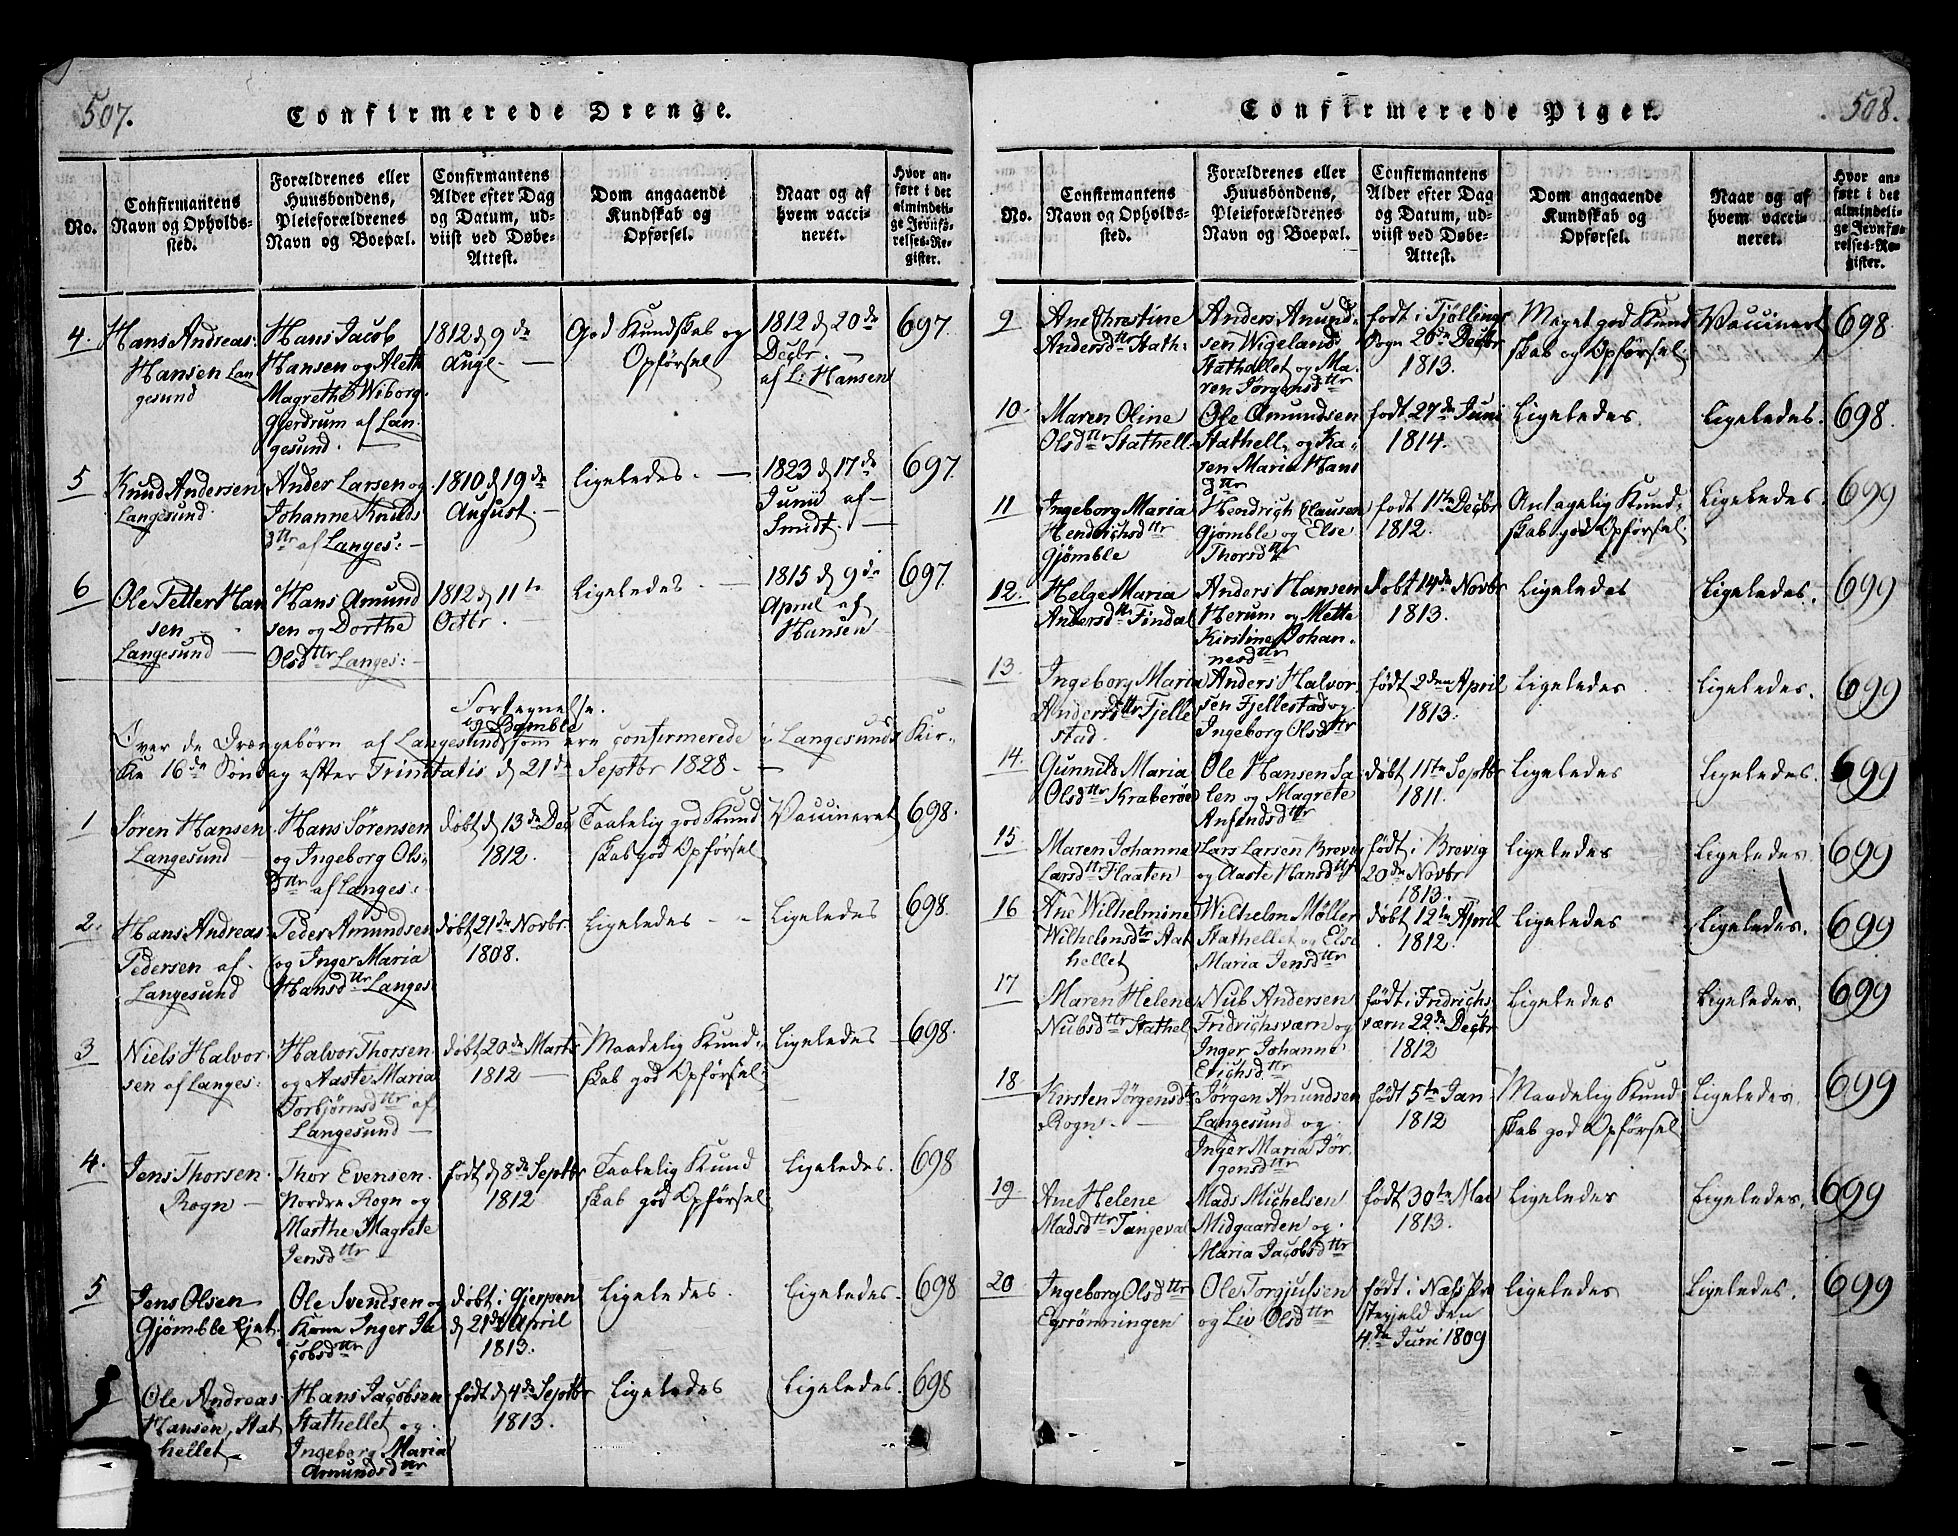 507.
Confirmerede Drenge.
No.
Confirmantens
Navn og Opholds-
sted.
Forældrenes eller
Huusbondens,
Pleieforældrenes
Navn og Boepæl.
Confirmantens
Alder efter Dag
og Datum, ud-
viist ved Døbe-
Attest.
Dom angaaende
Kundskab og
Opførsel.
Naar og af
hvem vacci-
neret.
Hvor an-
ført i det
almindeli-
ge Jevnfø-
relses-Re-
gister.
4.
Hans Andreas
Hansen Lan
gesund
Hans Jacob
Hansen og Aleth
Magrethe Wiborg
Gjerdrum af Lan-
gesund.
1812 d 9de
Augl.
God Kundskab og
Opførsel
1812 d 20de
Decbr.
af L: Hansen
697.
5
Knud Andersen
Langesund
Ander Larsen og
Johanne Knuds
Dttr af Langes:
1810 d 19de
August.
Ligeledes.
1823 d 17de
Junii af
Smidt.
697.
6
Ole Petter Han
sen
Langesund
Hans Amund
sen og Dorthe
Olsdttr Langes:
1812 d 11te
Octbr.
Ligeledes
1815 d 9de
April af
Hansen
697.
Fortegnelse.
og Bamble
Over de Drængebørn af Langesund som ere confirmerede i Langesunds Kir-
ke 16de Søndag efter Trinitatis d 21de Septbr 1828.
1
Søren Hansen
Langesund
Hans Sørensen
og Ingeborg Ols-
Dttr af Langes:
døbt d 13de Dec
1812.
Taalelig god Kund
skab god Opførsel
Vaccineret
698.
2.
Hans Andreas
Pedersen af
Langesund
Peder Amundsen
og Inger Maria
Hansdttr Langes
døbt 21de Novbr.
1808.
Ligeledes
Ligeledes
698.
3
Niels Halvor
sen af Langes:
Halvor Thorsen
og Aaste Maria
Torbjørnsdttr af
Langesund
døbt 20de Marts
1812
Maadelig Kund-
skab god Opførsel
Ligeledes
698.
4.
Jens Thorsen
Rogn
Thor Evensen
Nordre Rogn og
Marthe Magrete
Jensdttr
født d 8de Septbr
1812
Taalelig Kund
skab god Opførsel
Ligeledes.
698
5
Jens Olsen
Gjømble Eiet.
Ole Svendsen og
Kone Inger Ja
cobsdttr
døbt i Gjerpen
d 21de April
1813.
Ligeledes.
Ligeledes.
698
Ole Andreas
Hansen, Stat
hellet
Hans Jacobsen
Stathellet og
Ingeborg Maria
Amundsdttr
født d 4de Septbr
1813.
Ligeledes
Ligeledes.
698
508.
Confirmerede Piger.
No.
Confirmantens
Navn og Opholds-
sted.
Forældrenes eller
Huusbondens,
Pleieforældrenes
Navn og Boepæl.
Confirmantens
Alder efter Dag
og Datum, ud-
viist ved Døbe-
Attest.
Dom angaaende
Kundskab og
Opførsel.
Naar og af
hvem vacci-
neret.
Hvor an-
ført i det
almindeli-
ge Jevnfø-
relses-Re-
gister.
9
Ane Chrestine
Andersdttr Stath:
Anders Anund-
sen Wigeland
Stathellet og Ma-
ren Jørgensdttr
født i Tjøllings
Sogn 26de Decbr
1813.
Meget god Kund
skab og Opførsel
Vaccineret
698.
10.
Maren Oline
Olsdttr Stathell.
Ole Amundsen
Stathell. og Ka-
ren Maria Hans
Dttr
født 27de Juni
1814.
Ligeledes.
Ligeledes.
698.
11
Ingeborg Maria
Hendrichsdttr
Gjømble
Hendrich Clausen
Gjømble og Else
Thorsdttr
født 11te Decbr
1812.
Antagelig Kund-
skab god Opførsel
Ligeledes.
699
12.
Helge Maria
Andersdttr Findal
Anders Hansen
Herum og Mette
Kirstine Johan-
nesdttr
døbt 14de Novbr
1813.
Ligeledes
Ligeledes.
699
13.
Ingeborg Maria
Andersdttr Fjelle
stad.
Anders Halvor
sen Fjellestad og
Ingeborg Olsdttr
født 2den April
1813.
Ligeledes
Ligeledes.
699
14.
Gunnild Maria
Olsdttr Kraberøe
Ole Hansen Sa
len og Magrete
Anfindsdttr
døbt 11te Septbr
1811.
Ligeledes
Ligeledes.
699
15
Maren Johanne
Larsdttr Flaaten
Lars Larsen Brevig
og Aaste Hansdttr
født i Brevig
20de Novbr
1813.
Ligeledes
Ligeledes.
699
16
Ane Wilhelmine
Wilhelmsdtr Stat
hellet
Wilhelm Møller
Stathellet og Else
Maria Jensdttr
døbt 12te April
1812.
Ligeledes
Ligeledes.
699
17
Maren Helene
Nubsdttr Stathel.
Nub Andersen
Fridrichsværn og
Inger Johanne
Erichsdttr
født i Fridrichs-
værn 22de Decbr
1812
Ligeledes
Ligeledes.
699
18.
Kirsten Jørgensdt
Rogn.
Jørgen Anundsen
Langesund og
Inger Maria Jør
gensdttr
født 5te Jan
1812
Maadelig Kund
skab god Opførsel
Ligeledes.
699
19
Ane Helene
Madsdttr Tangeval
Mads Michelsen
Midgaarden og
Maria Jacobsdttr
født 30te Mai
1813.
Ligeledes
Ligeledes.
699
20
Ingeborg Olsdttr
Egsrønningen
Ole Torjussen
og Liv Olsdttr
født i Næss Præ
stegjeld den
4de Juni 1809
Ligeledes
Ligeledes.
699